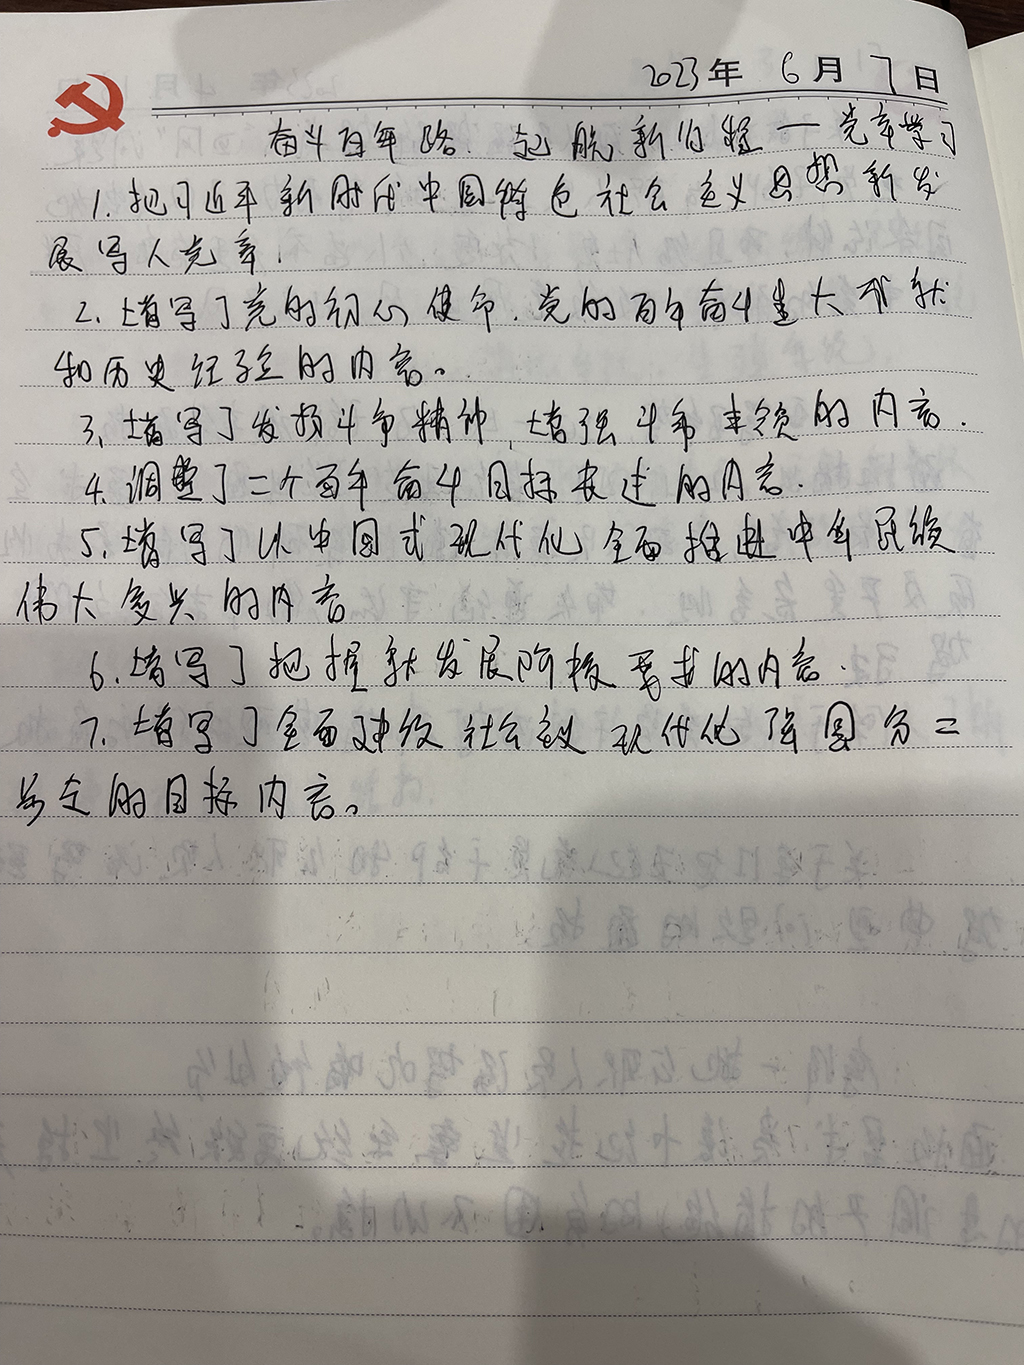 2023年 6月 7日
奋斗百年路 起航新征程 — 党章学习
1. 把习近平新时代中国特色社会主义思想新发
展写入党章.
2. 增写了党的初心使命. 党的百年奋斗重大成就
和历史经验的内容。
3. 增写了发扬斗争精神, 增强斗争本领的内容.
4. 调整了二个百年奋斗目标表述的内容.
5. 增写了以中国式现代化全面推进中华民族
伟大复兴的内容
6. 增写了把握新发展阶段要求的内容.
7. 增写了全面建设社会主义现代化强国分二
步走的目标内容。